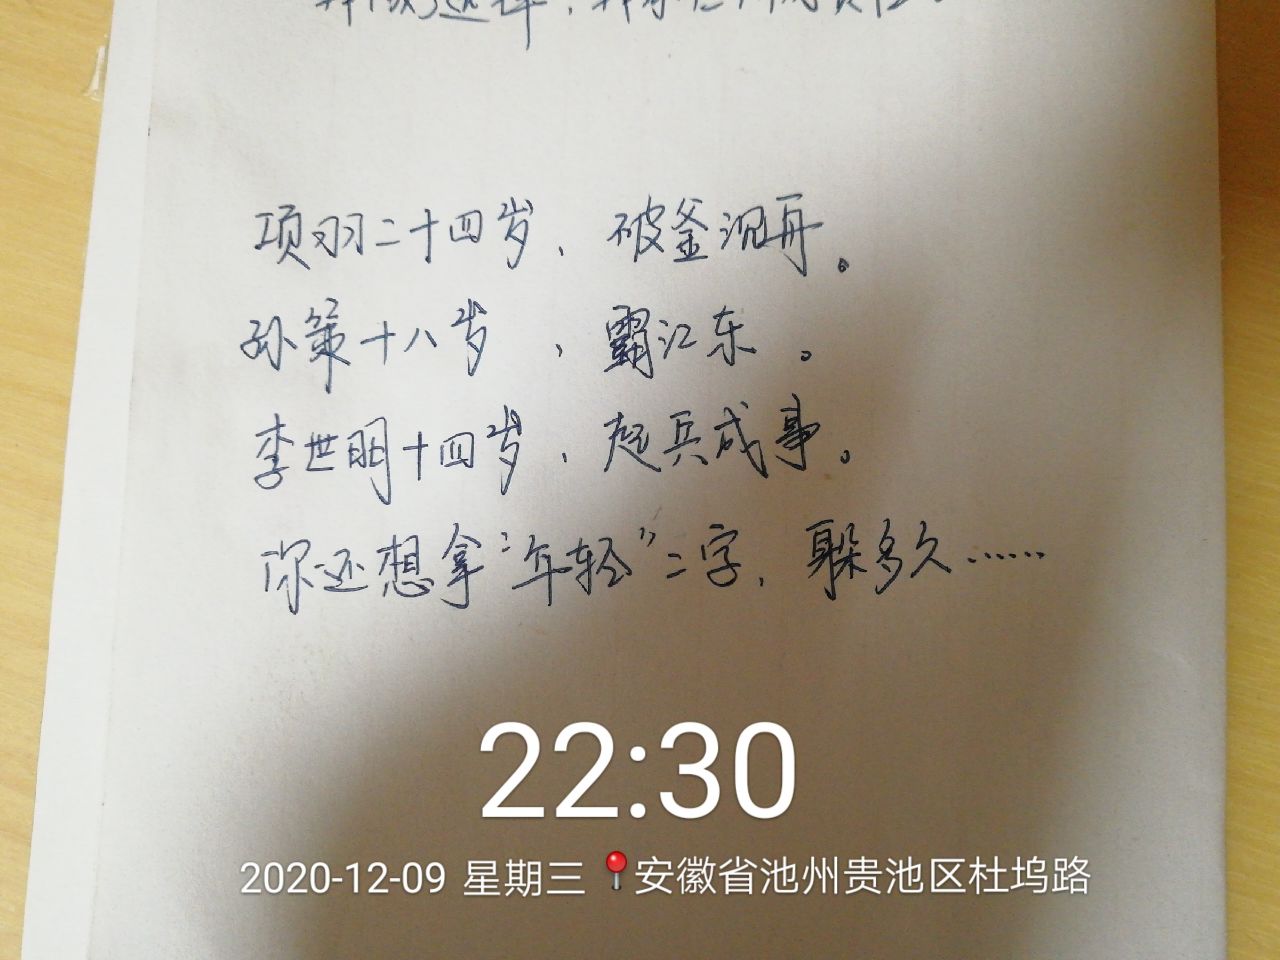 项羽二十四岁，破釜沉舟。
孙策十八岁，霸江东。
李世明十四岁，起兵成事。
你还想拿“年轻”二字，躲多久……
22:30
2020-12-09 星期三 安徽省池州贵池区杜坞路